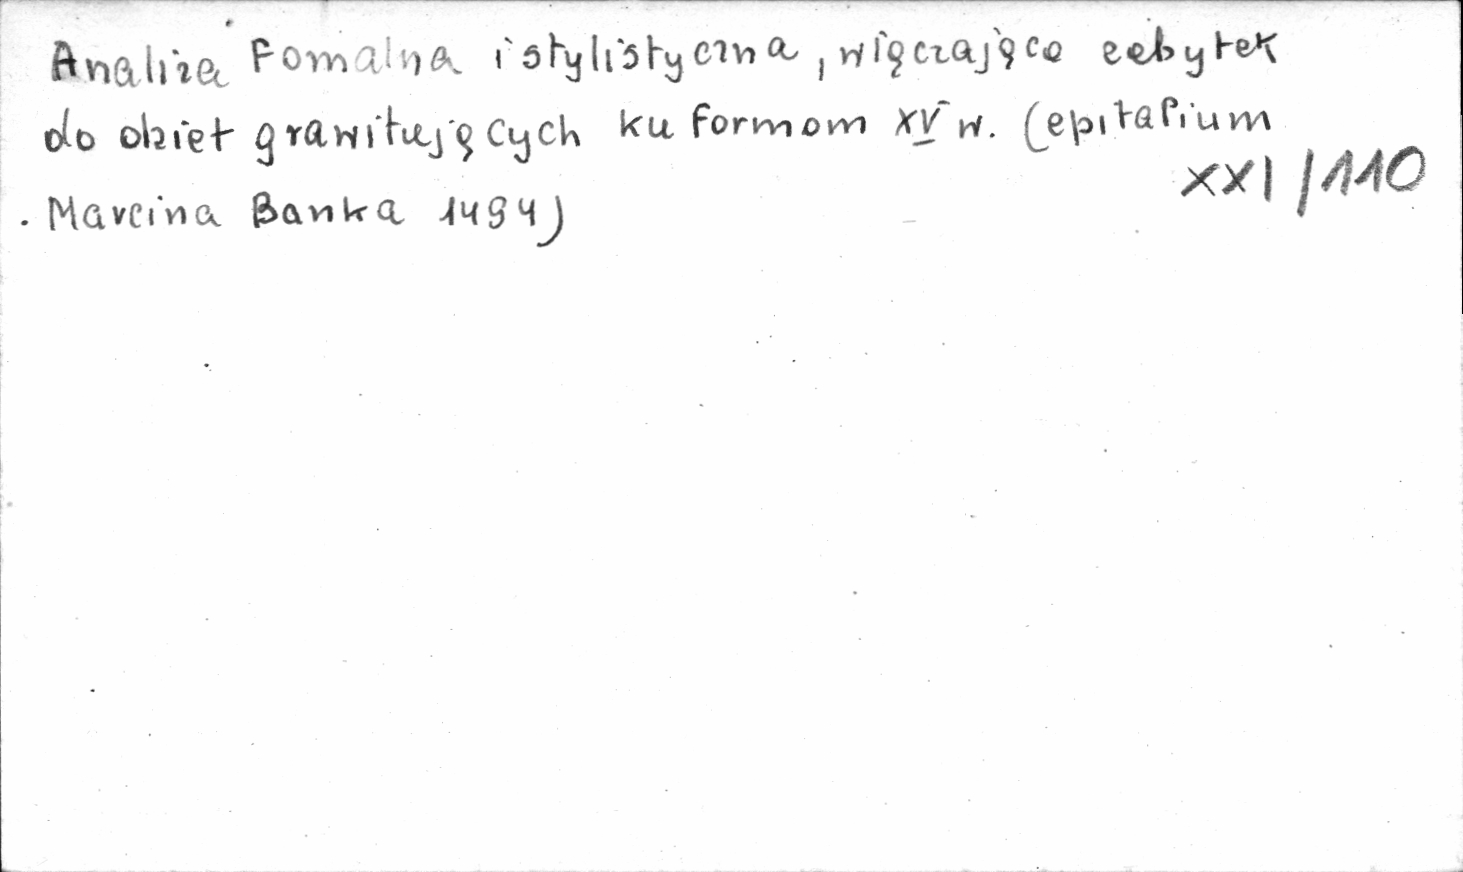 Analiza Fomalna i stylistyczna, więczające zebytek
do obiet grawitujęcych ku formom XV w. (epitafium
XXI/110
. Marcina Banka 1494)